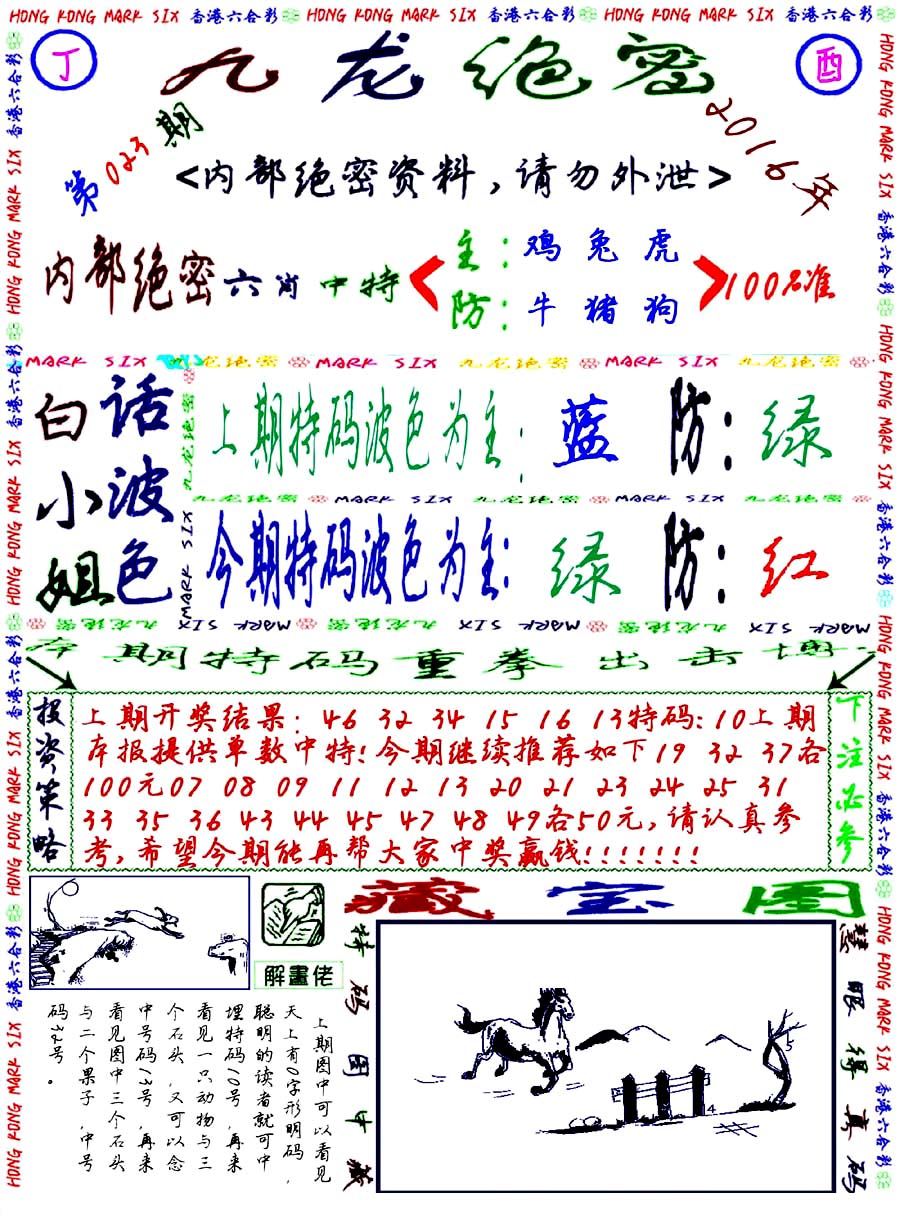 HONG KONG MARK SIX 香港六合彩 HONG KONG MARK SIX 香港六合彩 HONG KONG MARK SIX 香港六合彩
丁
九龙绝密
酉
第023期
2016年
<内部绝密资料,请勿外泄>
内部绝密六肖中特
主:鸡兔虎
防:牛猪狗
100%准
MARK SIX 九龙绝密 MARK SIX 九龙绝密 MARK SIX 九龙绝密
白小姐
话波色
上期特码波色为主:蓝 防:绿
九龙绝密 MARK SIX 九龙绝密 MARK SIX 九龙绝密
今期特码波色为主:绿 防:红
MARK SIX 九龙绝密 MARK SIX 九龙绝密 MARK SIX 九龙绝密
本期特码重拳出击博
投资策略
上期开奖结果:46 32 34 15 16 13特码:10上期
本报提供单数中特!今期继续推荐如下19 32 37各
100元07 08 09 11 12 13 20 21 23 24 25 31
33 35 36 43 44 45 47 48 49各50元,请认真参
考,希望今期能再帮大家中奖赢钱!!!!!!!
下注必参
解畫佬
藏宝图
特码图中藏
慧眼得真码
上期图中可以看见
天上有0字形明码,
聪明的读者就可中
埋特码10号,再来
看见一只动物与三
个石头,又可以念
中号码13号,再来
看见图中三个石头
与二个果子,中号
码32号。